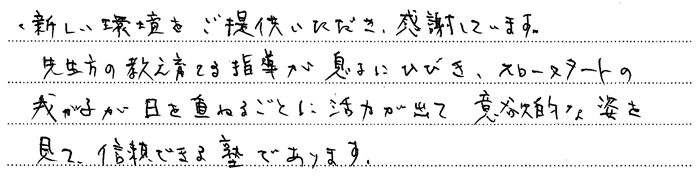 ・新しい環境をご提供いただき、感謝しています。
先生方の教え育てる指導が息子にひびき、スロースタートの
我が子が日を重ねるごとに活力が出て意欲的な姿を
見て、信頼できる塾であります。